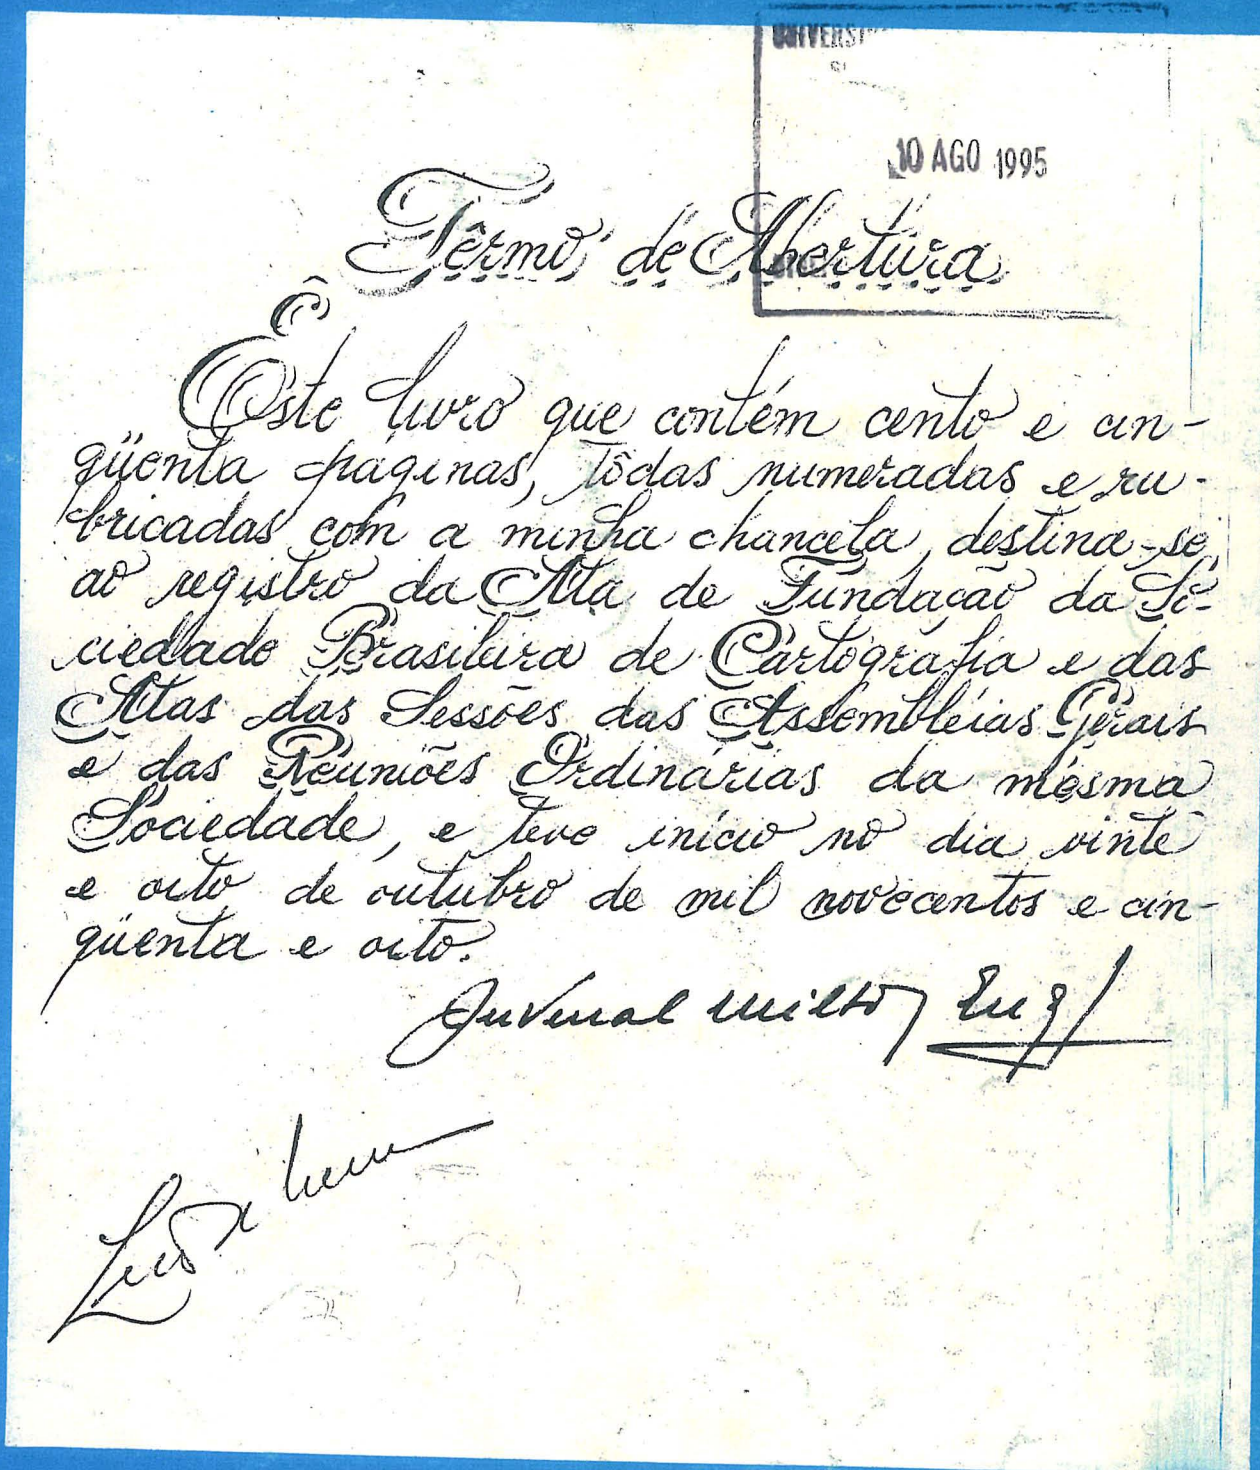 UNIVERSI
10 AGO 1995
Têrmo de Abertura
Êste livro que contém cento e cin-
qüenta páginas, tôdas numeradas e ru-
bricadas com a minha chancela, destina-se,
ao registro da Ata de Fundação da So-
ciedade Brasileira de Cartografia e das
Atas das Sessões das Assembléias Gerais
e das Reuniões Ordinárias da mesma
Sociedade, e teve início no dia vinte
e oito de outubro de mil novecentos e cin-
qüenta e oito.
Juvenal Milton Eng